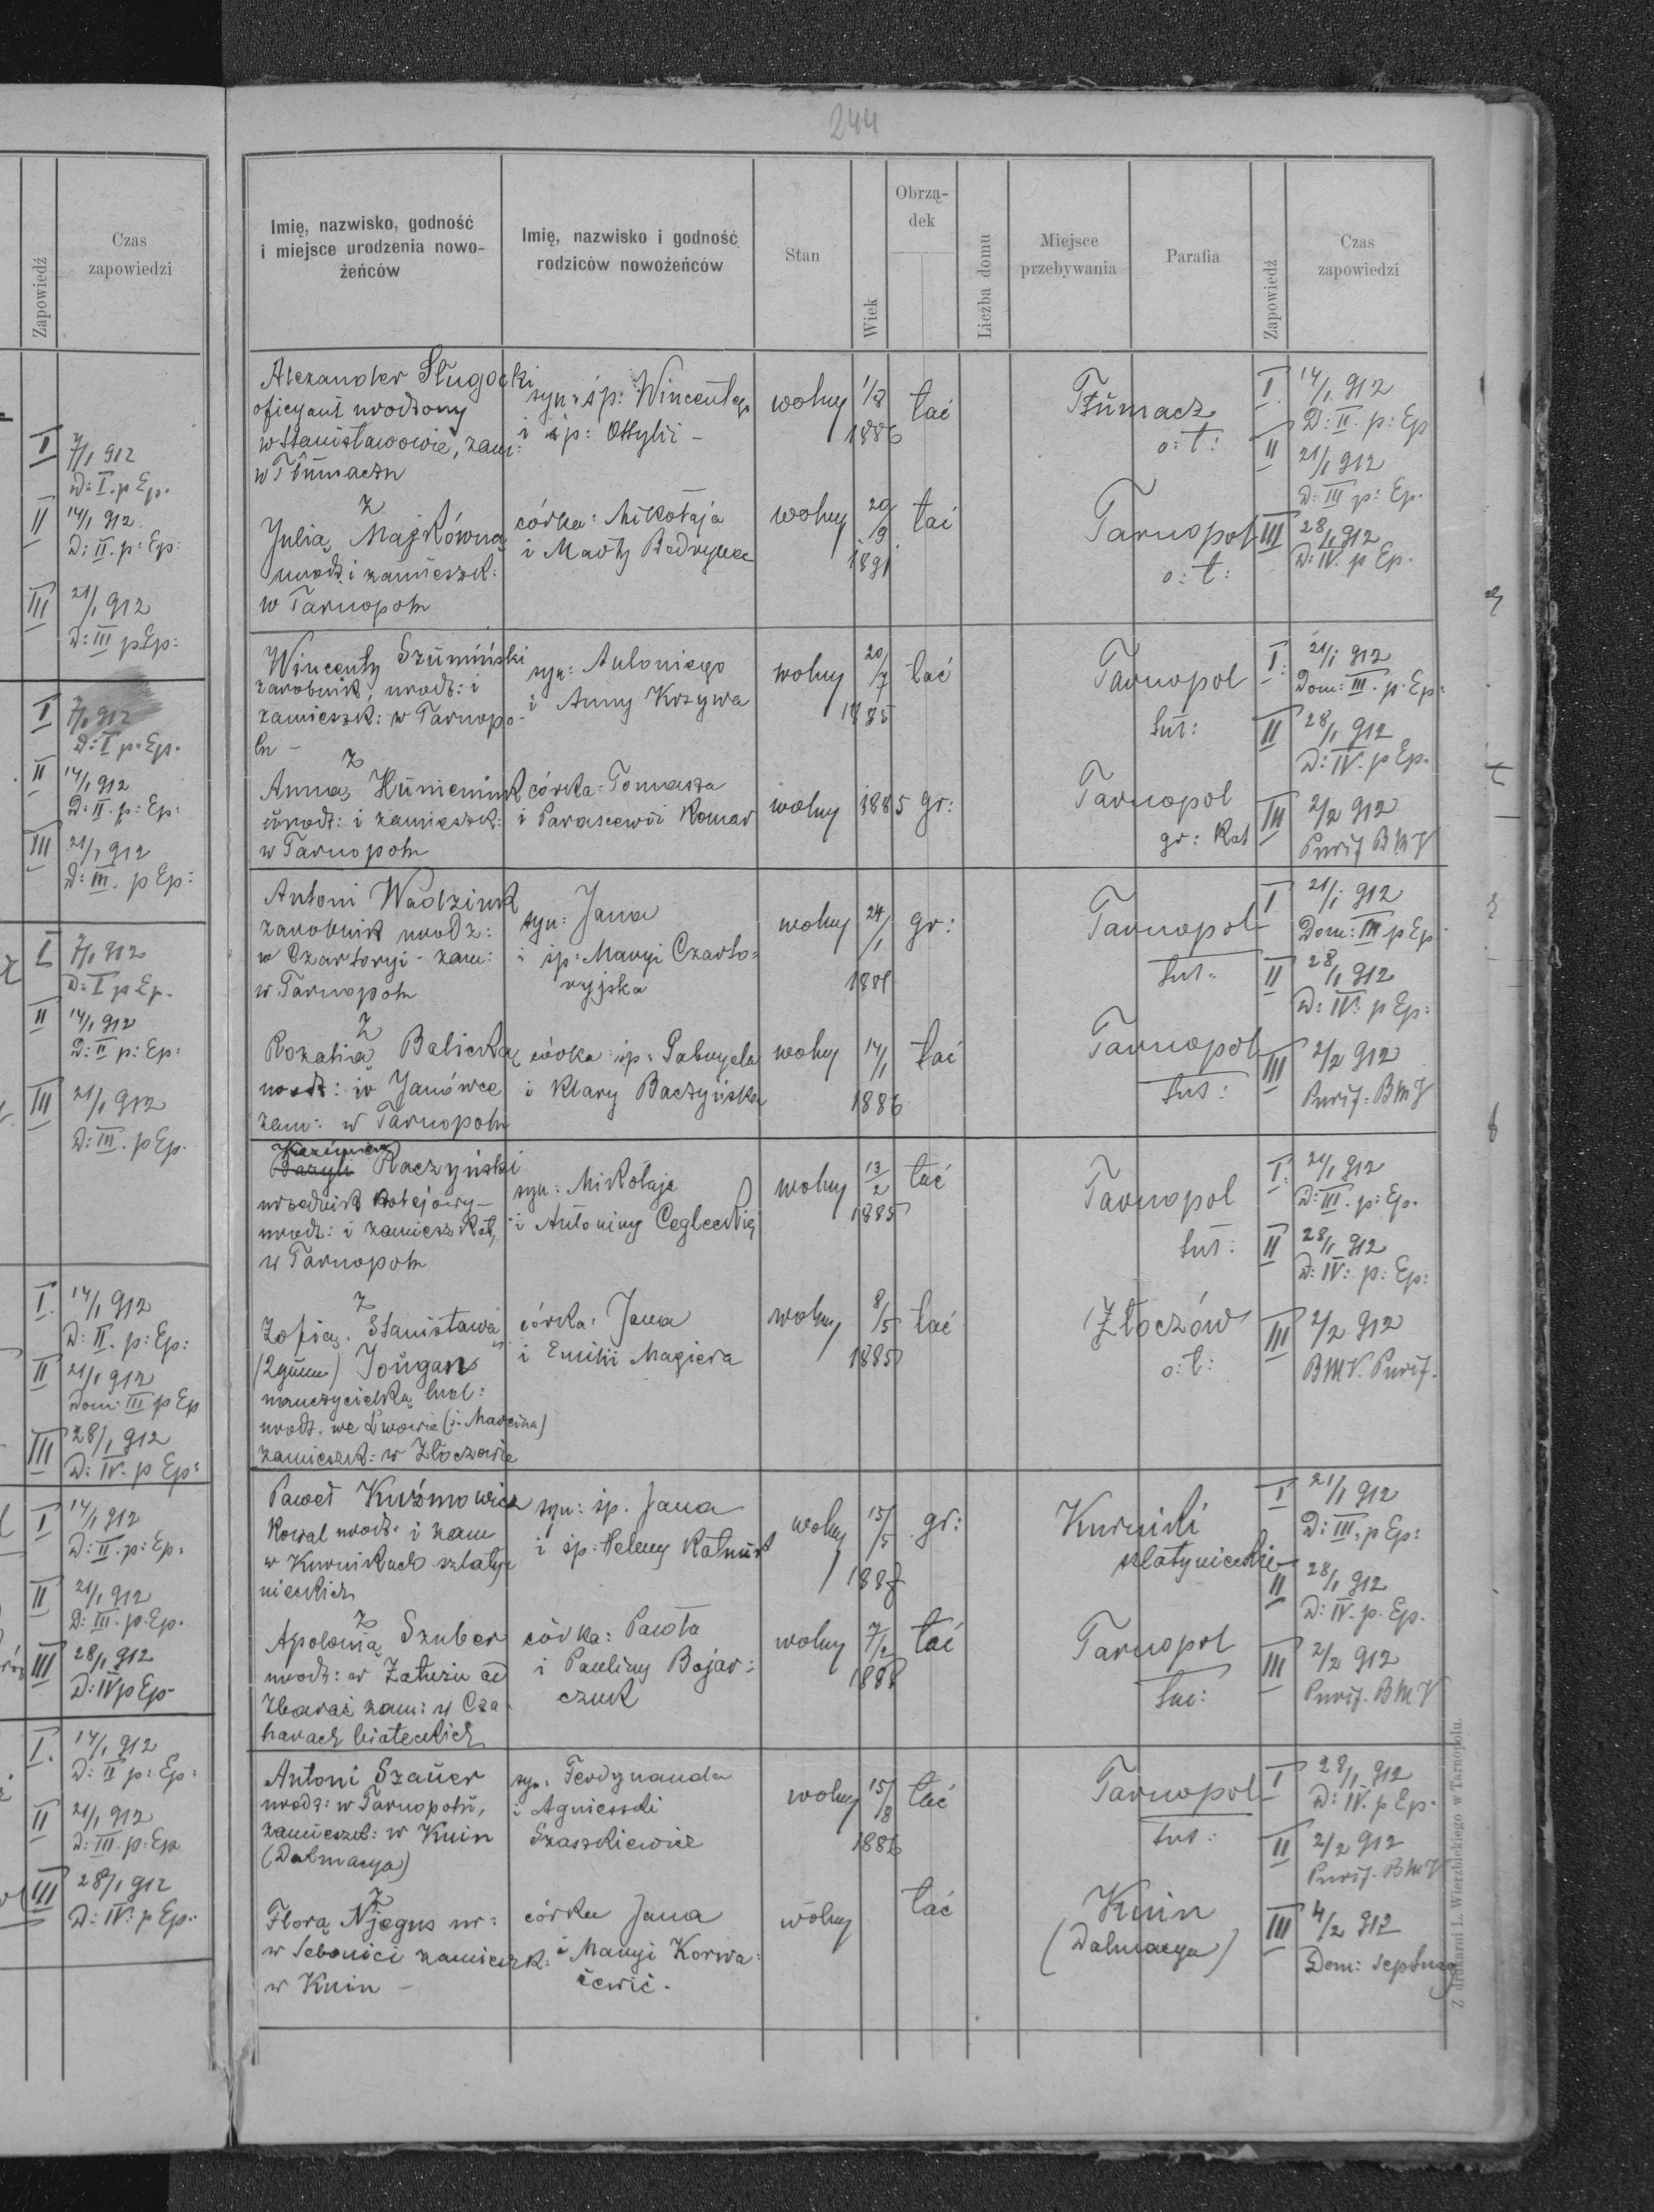 244
Zapowiedź
Czas
zapowiedzi
I 7/1 912
D: I. p Ep.
II 14/1 912
D: II. p: Ep:
III 21/1 912
D: III p Ep:
I 7/1 912
D: I p. Ep.
II 14/1 912
D: II. p: Ep:
III 21/1 912
D: III. p Ep:
I 7/1 912
D: I p Ep.
II 14/1 912
D: II p: Ep:
III 21/1 912
D: III. p Ep.
I. 14/1 912
D: II. p: Ep:
II 21/1 912
Dom: III p Ep
III 28/1 912
D: IV. p Ep:
I 14/1 912
D: II. p: Ep:
II 21/1 912
D: III. p. Ep.
III 28/1 912
D: IV p Ep
I. 14/1 912
D: II p: Ep:
II 21/1 912
D: III. p: Ep
III 28/1 912
D: IV: p Ep:
Imię, nazwisko, godność
i miejsce urodzenia nowo-
żeńców
Imię, nazwisko i godność
rodziców nowożeńców
Stan
Wiek
Obrzą-
dek
Liczba domu
Miejsce
przebywania
Parafia
Zapowiedź
Czas
zapowiedzi
Alexander Sługocki
oficyant urodzony
w Stanisławowie, zam:
w Tłumaczu
syn: śp: Wincentego
i śp: Ottylii -
wolny
1/8
1886
łać
Tłumacz
o: ł:
I. 14/1 912
D: II. p: Ep
II 21/1 912
D: III p: Ep.
z
Julią Majkówną
urodz. i zamieszk:
w Tarnopolu
córka: Mikołaja
i Maryi
wolny
20/9
1891
łać
Tarnopol
o: ł:
III 28/1 912
D: IV. p Ep.
Wincenty Szumiński
zarobnik, urodz: i
zamieszk: w Tarnopo-
lu -
syn: Antoniego
i Anny Krzywa
wolny
20/7
1885
łać
Tarnopol
tut:
I: 21/1 912
Dom: III. p. Ep:
II 28/1 912
D: IV. p Ep.
z
Anną Huniemiuk
urodz: i zamieszk:
w Tarnopolu
córka: Tomasza
i Parascewii Komar
wolny
1885
gr:
Tarnopol
gr: Kat
III 2/2 912
Purif BMV
Antoni Wadziuk
zarobnik urodz:
w Czartoryi - zam:
w Tarnopolu
syn: Jana
i śp: Maryi Czarto-
ryjska
wolny
24/1
gr:
Tarnopol
tut:
I 21/1 912
Dom: III p Ep
II 28/1 912
D: IV: p Ep:
z
Rozalią Balicką
urodz: w Janówce
zam: w Tarnopolu
córka śp: Gabryela
i Klary Baczyńska
wolny
14/1
1886
łać
Tarnopol
tut:
III 2/2 912
Purif: BMV
Kazimierz
Bazyli Raczyński
urzędnik kolejowy -
urodz: i zamieszkał
w Tarnopolu
syn: Mikołaja
i Antoniny
wolny
13/2
1885
łać
Tarnopol
tut:
I: 21/1 912
D: III. p: Ep.
II 28/1 912
D: IV: p: Ep:
z
Zofią Stanisława
(2gnum) Jougan
nauczycielką lud:
urodz. we Lwowie (ś. Marcina)
zamieszk: w Złoczowie
córka: Jana
i Emilii Magiera
wolny
8/5
1885
łać
Złoczów
o: ł:
III 2/2 912
BMV. Purif.
Paweł Kuźmowicz
Kowal urodz. i zam
w Kurnikach szlaty
nieckich
syn: śp. Jana
i śp: Heleny
wolny
15/5
gr:
Kurniki
szlatynieckie
I 21/1 912
D: III. p Ep:
II 28/1 912
D: IV. p. Ep.
z
Apolonią Szuber
urodz: w Załużu ad
Zbaraż zam: w Cza
harach białeckich
córka: Pawła
i Pauliny Bojar-
czuk
wolny
7/2
1888
łać
Tarnopol
łac:
III 2/2 912
Purif. BMV
Antoni Szauer
urodz: w Tarnopolu,
zamieszk: w Knin
(Dalmacya)
syn: Ferdynanda
i Agnieszki
Szaszkiewicz
wolny
15/8
1886
łać
Tarnopol
tut:
I 28/1 912
D: IV. p Ep.
II 2/2 912
Purif. BMV
z
Florą Njegus ur:
w Sebenici zamieszk:
w Knin -
córka Jana
i Maryi Korwa-
čewić.
wolny
łać
Knin
(Dalmacya)
III 4/2 912
Dom: Septuag
Z drukarni L. Wierzbickiego w Tarnopolu.